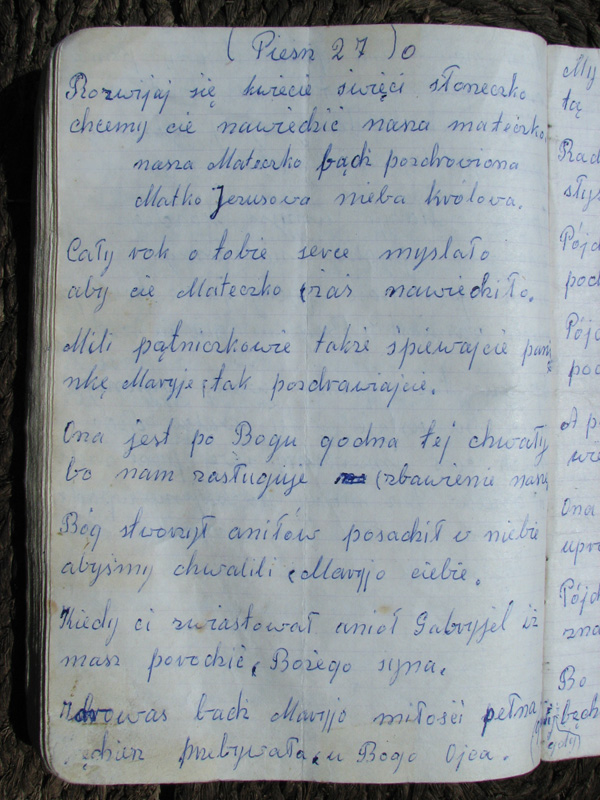 ( Piesn 27 ) o
Rozwijaj się kwiecie święci słoneczko
chcemy cie nawiedzić nasza mateczko
nasza Mateczko bądz pozdrowiona
Matko Jezusowa nieba królowa.
Cały rok o tobie serce myslało
aby cie Mateczko zias nawiedziło.
Mili pątniczkowie także śpiewajcie pani
nkę Maryje tak pozdrawiajcie.
Ona jest po Bogu godna tej chwały
bo nam zasługuje (zbawienie naszę
Bóg stworzył aniłów posadził w niebie
abyśmy chwalili Maryjo ciebie.
Kiedy ci zwiastował anioł Gabryjel iż
masz porodzić, Bożego syna.
zdrowas badz Maryjo miłości pełna
będziesz przebywała, u Bogo Ojca.
My
tą
Rad
słys
Pójd
pod
Pójd
poc
A p
wie
Ona
upro
Pójd
zna
Bo
bedz